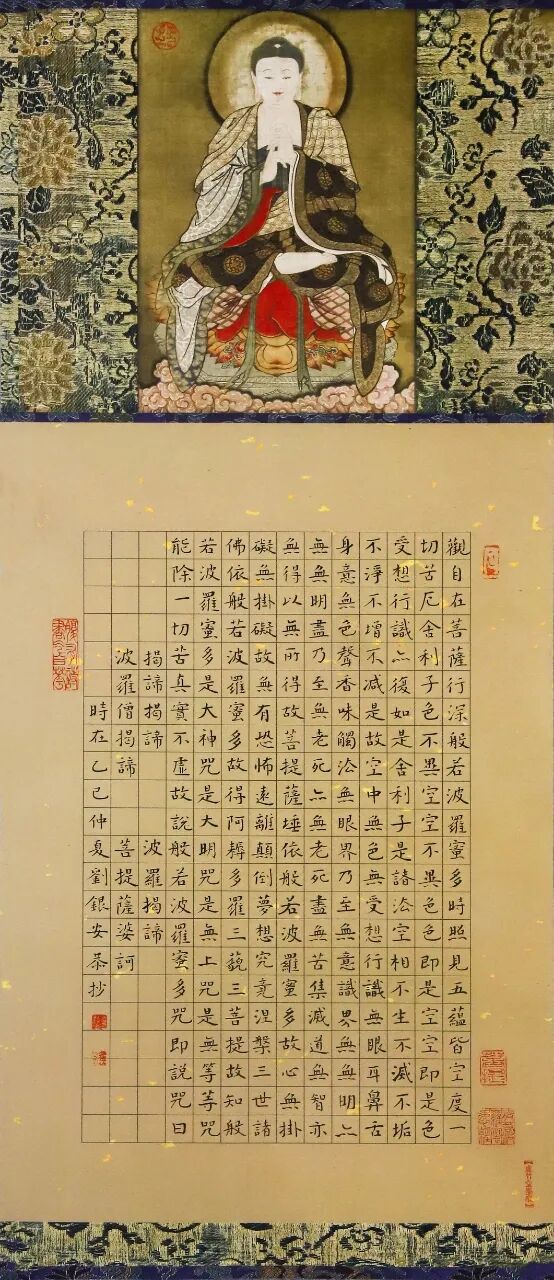 觀自在菩薩行深般若波羅蜜多時照見五蘊皆空度一
切苦厄舍利子色不異空空不異色色即是空空即是色
受想行識亦復如是舍利子是諸法空相不生不滅不垢
不淨不增不減是故空中無色無受想行識無眼耳鼻舌
身意無色聲香味觸法無眼界乃至無意識界無無明亦
無無明盡乃至無老死亦無老死盡無苦集滅道無智亦
無得以無所得故菩提薩埵依般若波羅蜜多故心無掛
礙無掛礙故無有恐怖遠離顛倒夢想究竟涅槃三世諸
佛依般若波羅蜜多故得阿耨多羅三藐三菩提故知般
若波羅蜜多是大神咒是大明咒是無上咒是無等等咒
能除一切苦真實不虛故說般若波羅蜜多咒即說咒曰
揭諦揭諦 波羅揭諦
波羅僧揭諦 菩提薩婆訶
時在乙巳仲夏劉銀安恭抄